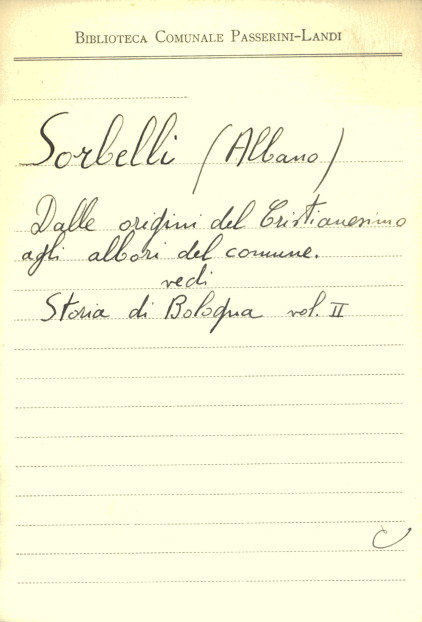 BIBLIOTECA COMUNALE PASSERINI-LANDI
Sorbelli (Albano)
Dalle origini del Cristianesimo
agli albori del comune.
vedi
Storia di Bologna vol. II
C